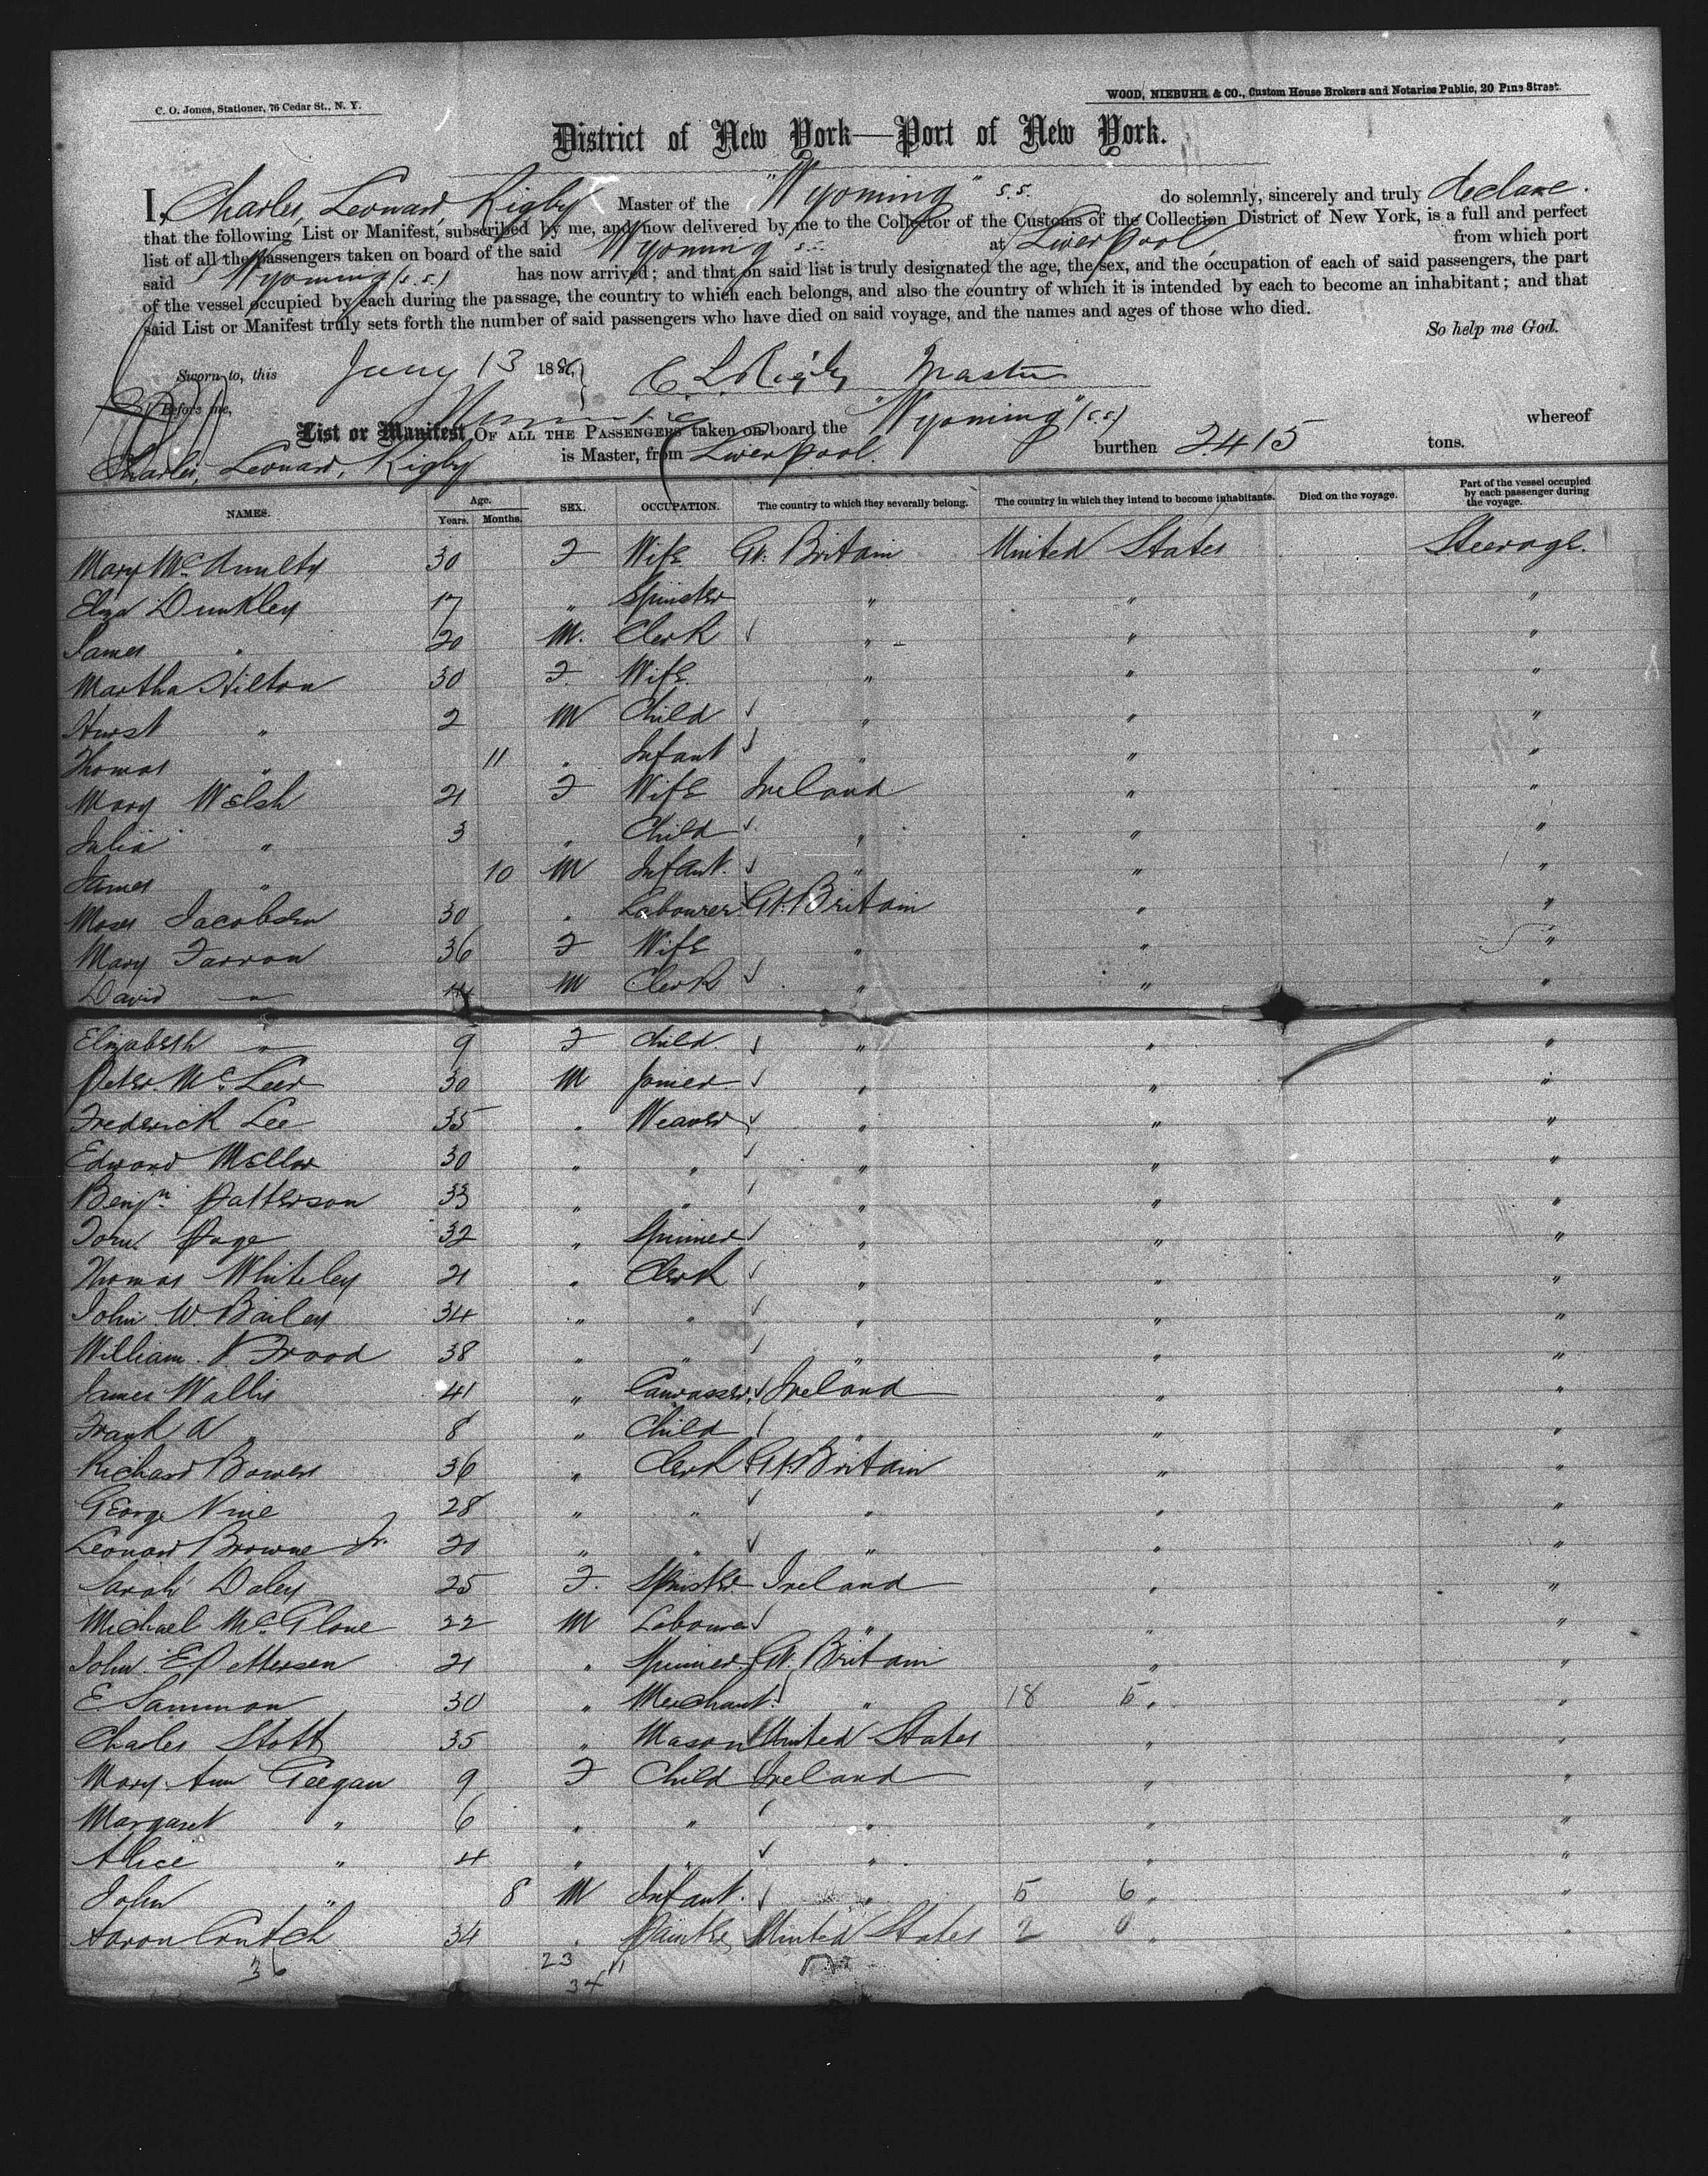 C. O. Jones, Stationer, 76 Cedar St., N. Y.
WOOD, NIEBUHR & CO., Custom House Brokers and Notaries Public, 20 Pine Street.
District of New York—Port of New York.
I, Charles, Leonard, Rigby Master of the "Wyoming" s.s. do solemnly, sincerely and truly declare.
that the following List or Manifest, subscribed by me, and now delivered by me to the Collector of the Customs of the Collection District of New York, is a full and perfect
list of all the passengers taken on board of the said Wyoming s.s. at Liverpool from which port
said Wyoming (s.s.) has now arrived; and that on said list is truly designated the age, the sex, and the occupation of each of said passengers, the part
of the vessel occupied by each during the passage, the country to which each belongs, and also the country of which it is intended by each to become an inhabitant; and that
said List or Manifest truly sets forth the number of said passengers who have died on said voyage, and the names and ages of those who died.
So help me God.
Sworn to, this 13 188 C. L. Rigby Master
Before me,
List or Manifest OF ALL THE PASSENGERS taken on board the "Wyoming" (s.s.) whereof
Charles, Leonard, Rigby is Master, from Liverpool. burthen 2415 tons.
NAMES. Age. Years. Months. SEX. OCCUPATION. The country to which they severally belong. The country in which they intend to become inhabitants. Died on the voyage. Part of the vessel occupied by each passenger during the voyage.
Mary 30 F Wife Gt. Britain United States Steerage.
Eliza Dunkley 17 " Spinster " " "
James " 20 M. Clerk " " "
Martha Hilton 30 F. Wife " " "
Hurst " 2 M Child " " "
Thomas " 11 " Infant " " "
Mary Welsh 21 F Wife Ireland " "
Julia " 3 " Child " " "
James " 10 M Infant. " " "
Moses Jacobsen 30 " Labourer Gt. Britain " "
Mary Farron 36 F Wife " " "
David " M Clerk " " "
Elizabeth " 9 F Child. " " "
Peter Mc Leer 30 M Joiner " " "
Frederick Lee 35 " Weaver " " "
Edward Mellor 30 " " " " "
Benjn. Patterson 33 " " " " "
Page 32 " Spinner " " "
Thomas Whiteley 21 " Clerk " " "
John W. Bailey 34 " " " " "
William Frood 38 " " " " "
James Wallis 41 " Canvasser Ireland " "
Frank " 8 " Child " " "
Richard Bowers 36 " Clerk Gt. Britain " "
George 28 " " " " "
Leonard Browne Jr. 20 " " " " "
Sarah Daley 25 F. Spinster Ireland " "
Michael McGlone 22 M Labourer " " "
John E Pettersen 21 " Spinner Gt. Britain " "
E. Sammon 30 " Merchant " 18 5 " "
Charles Stott 35 " Mason United States " "
Mary Ann Geegan 9 F Child Ireland " "
Margaret " 6 " " " " "
Alice " 4 " " " " "
John " 8 M Infant. " 5 6 " "
Aaron 34 " Painter United States 2 0 " "
36 23 11
34